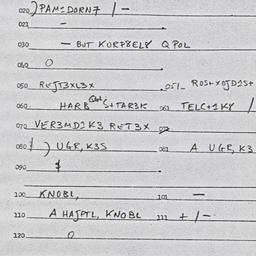 020 ) PAM=DORN7 / -
021 -
030 - BUT KORP8ELY QPOL
040 O
050 REJT3XL3X 051
060 HARB S+TAR3K 061 TELC+1KY /
070 VER3MDJK3 RET3X
080 ) UGR, K3S 081 A UGR, K3
090 $
100 KNOBL, 101 -
110 A HAJPTL, KNOBL 111 + / -
120 O